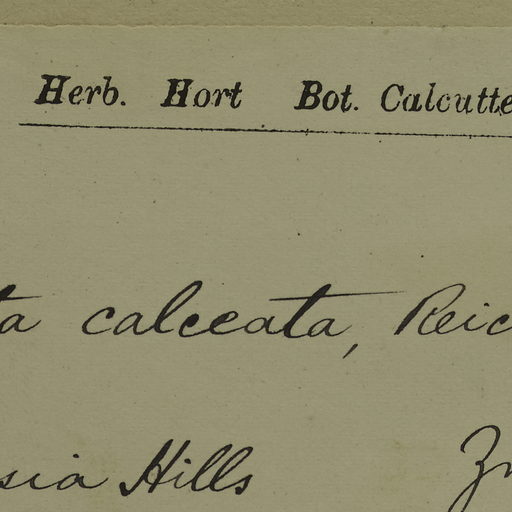 Herb. Hort Bot. Calcutte
ta calceata, Reic
sia Hills